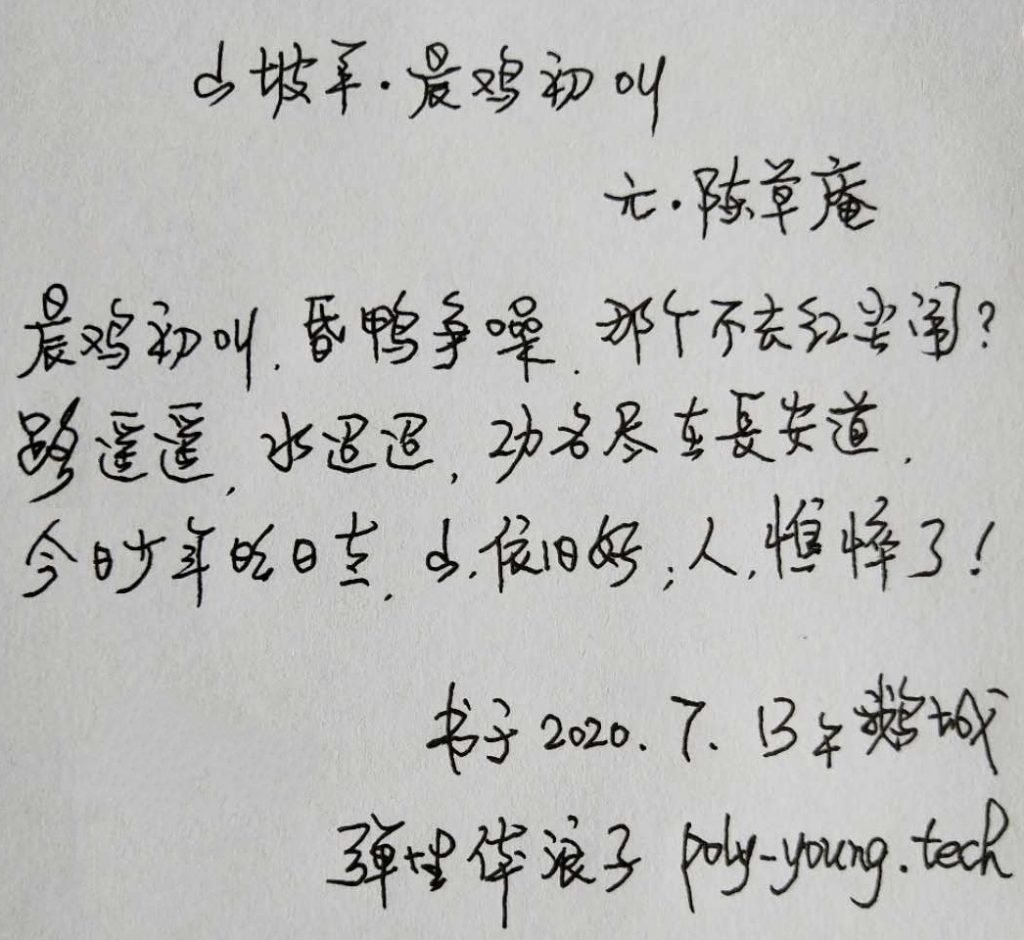 山坡羊·晨鸡初叫
元·陈草庵
晨鸡初叫，昏鸭争噪，那个不去红尘闹？
路遥遥，水迢迢，功名尽在長安道。
今日少年明日老，山，依旧好；人，憔悴了！
书于2020.7.13午鹅城
弹性体浪子 poly-young.tech